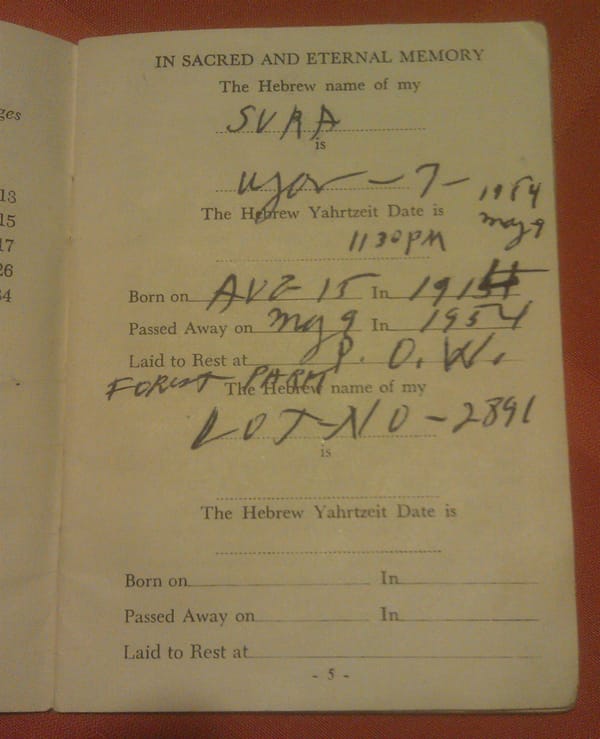 ges
13
15
17
26
34
IN SACRED AND ETERNAL MEMORY
The Hebrew name of my
SURA
is
- 7 -
1954
The Hebrew Yahrtzeit Date is
May 9
11 30 PM
Born on AUG 15 In
Passed Away on May 9 In 1954
Laid to Rest at P. O. W.
FOREST PARK
The Hebrew name of my
LOT-NO-2891
is
The Hebrew Yahrtzeit Date is
Born on In
Passed Away on In
Laid to Rest at
- 5 -